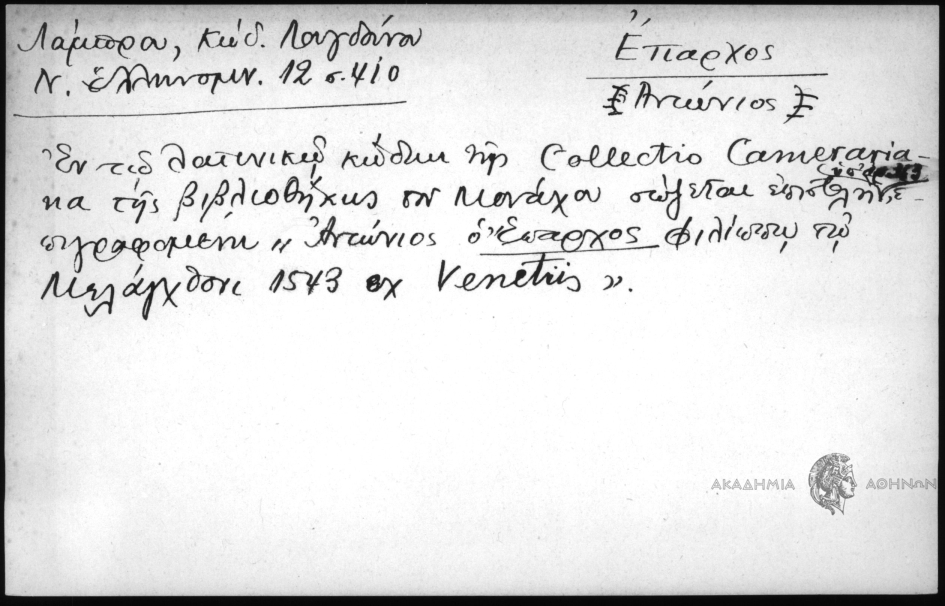 Λάμπρου, Κώδ. Λουγδούνου
Ν. Ἑλληνομν. 12 σ. 410
Ἔπαρχος
Ἀντώνιος
Ἐν τῷ λατινικῷ κώδικι τῆς Collectio Cameraria-
na τῆς βιβλιοθήκης τοῦ Μονάχου σώζεται ἐπιστολὴ ἐ-
πιγραφομένη „ Ἀντώνιος ὁ Ἔπαρχος Φιλίππῳ τῷ
Μελάγχθονι 1543 ex Venetiis ».
ΑΚΑΔΗΜΙΑ ΑΘΗΝΩΝ